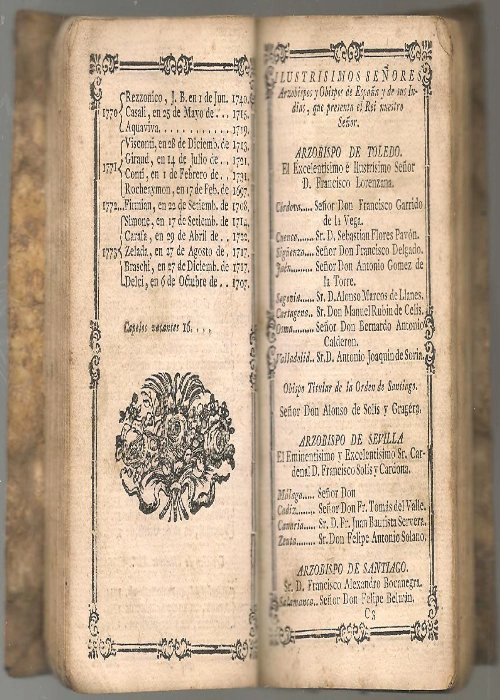 Rezzonico, J. B. en 1 de Jun. 1740.
1770 Casali, en 25 de Mayo de... 1715.
Aquaviva.............. 1719.
Visconti, en 28 de Diciemb. de 1713.
1771 Giraud, en 14 de Julio de.. 1721.
Conti, en 1 de Febrero de... 1731.
Rochejmon, en 17 de Feb. de 1697.
1772... Firmian, en 22 de Setiemb. de 1708.
Simone, en 17 de Setiemb. de 1711.
Carafa, en 29 de Abril de... 1722.
1773 Zelada, en 27 de Agosto de. 1717.
Braschi, en 27 de Diciemb. de 1717.
Delci, en 6 de Octubre de.. 1707.
Capelos vacantes 16....
ILUSTRISIMOS SEÑORES
Arzobispos y Obispos de España y de sus In-
dias, que presenta el Rei nuestro
Señor.
ARZOBISPO DE TOLEDO.
El Excelentisimo é Ilustrisimo Señor
D. Francisco Lorenzana.
Córdova..... Señor Don Francisco Garrido
de la Vega.
Cuenca...... Sr. D. Sebastian Flores Pavón.
Sigüenza.... Señor Don Francisco Delgado.
Jaén......... Señor Don Antonio Gomez de
la Torre.
Segovia...... Sr. D. Alonso Marcos de Llanes.
Cartagena.. Sr. Don Manuel Rubin de Celis.
Osma......... Señor Don Bernardo Antonio
Calderon.
Valladolid.. Sr. D. Antonio Joaquin de Soria.
Obispo Titular de la Orden de Santiago.
Señor Don Alonso de Solis y Gragera.
ARZOBISPO DE SEVILLA
El Eminentisimo y Excelentisimo Sr. Car-
denal D. Francisco Solís y Cardona.
Málaga...... Señor Don
Cadiz........ Señor Don Fr. Tomás del Valle.
Canaria..... Sr. D. Fr. Juan Bautista Servera.
Zeuta........ Sr. Don Felipe Antonio Solano.
ARZOBISPO DE SANTIAGO.
Sr. D. Francisco Alexandro Bocanegra.
Salamanca.. Señor Don Felipe Beltrán.
C3